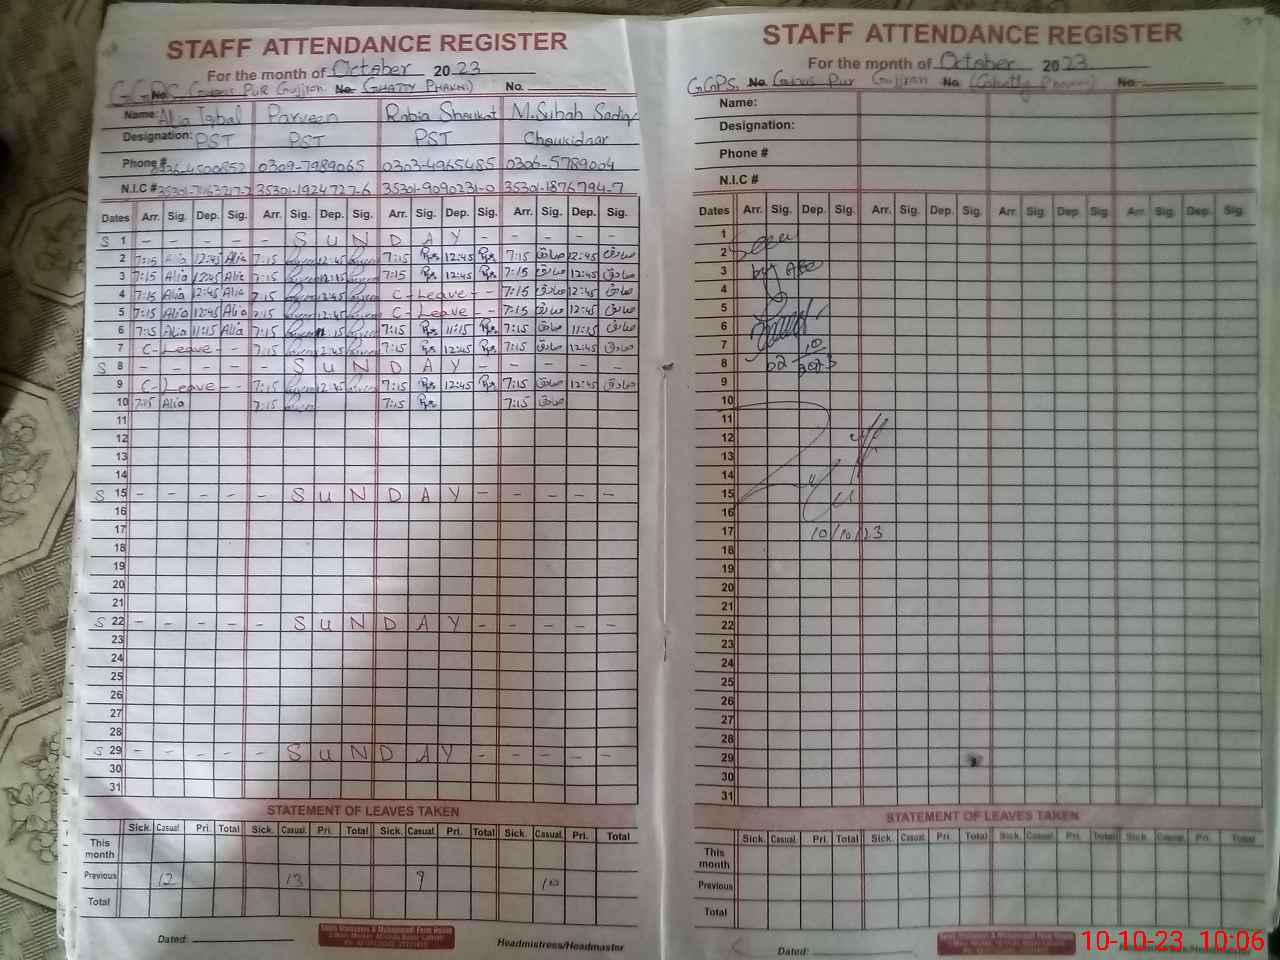 STAFF ATTENDANCE REGISTER
For the month of October 2023
G.G.P.S. No. Pur Gujran No. (Ghatty Phakni) No.
Name: Alia Iqbal Parveen Rabia Shoukat M.Subah Sadiq
Designation: PST PST PST Choukidaar
Phone # 0309-7989065 0303-4965485 0306-5789004
N.I.C # 35301-1924727-6 35301-9090231-0 35301-1876794-7
Dates Arr. Sig. Dep. Sig. Arr. Sig. Dep. Sig. Arr. Sig. Dep. Sig. Arr. Sig. Dep. Sig.
S 1 - - - - - S U N D A Y - - - - -
2 7:15 Alia 12:45 Alia 7:15 12:45 7:15 12:45 7:15 صادق 12:45 صادق
3 7:15 Alia 12:45 Alia 7:15 12:45 7:15 12:45 7:15 صادق 12:45 صادق
4 7:15 Alia 12:45 Alia 7:15 12:45 C-Leave - - 7:15 صادق 12:45 صادق
5 7:15 Alia 12:45 Alia 7:15 12:45 C-Leave - - 7:15 صادق 12:45 صادق
6 7:15 Alia 11:15 Alia 7:15 11:15 7:15 11:15 7:15 صادق 11:15 صادق
7 C-Leave - - 7:15 12:45 7:15 12:45 7:15 صادق 12:45 صادق
S 8 - - - - - S U N D A Y - - - - -
9 C-Leave - - 7:15 12:45 7:15 12:45 7:15 صادق 12:45 صادق
10 7:15 Alia 7:15 7:15 7:15 صادق
11
12
13
14
S 15 - - - - - S U N D A Y - - - - -
16
17
18
19
20
21
S 22 - - - - - S U N D A Y - - - - -
23
24
25
26
27
28
S 29 - - - - - S U N D A Y - - - - -
30
31
STATEMENT OF LEAVES TAKEN
Sick. Casual. Pri. Total Sick. Casual. Pri. Total Sick. Casual. Pri. Total Sick. Casual. Pri. Total
This month
Previous 12 13 9 10
Total
Dated:
Headmistress/Headmaster
STAFF ATTENDANCE REGISTER
For the month of October 2023
GGPS. No. Pur Gujran No (Ghatty Phakni) No.
Name:
Designation:
Phone #
N.I.C #
Dates Arr. Sig. Dep. Sig. Arr. Sig. Dep. Sig. Arr. Sig. Dep. Sig. Arr. Sig. Dep. Sig.
1
2 Seen
3 by AEO
4
5
6
7 10
8 02 2023
9
10
11
12
13
14
15
16
17 10/10/23
18
19
20
21
22
23
24
25
26
27
28
29
30
31
STATEMENT OF LEAVES TAKEN
Sick. Casual. Pri. Total Sick. Casual. Pri. Total Sick. Casual. Pri. Total Sick. Casual. Pri. Total
This month
Previous
Total
Dated:
Headmistress/Headmaster
10-10-23 10:06